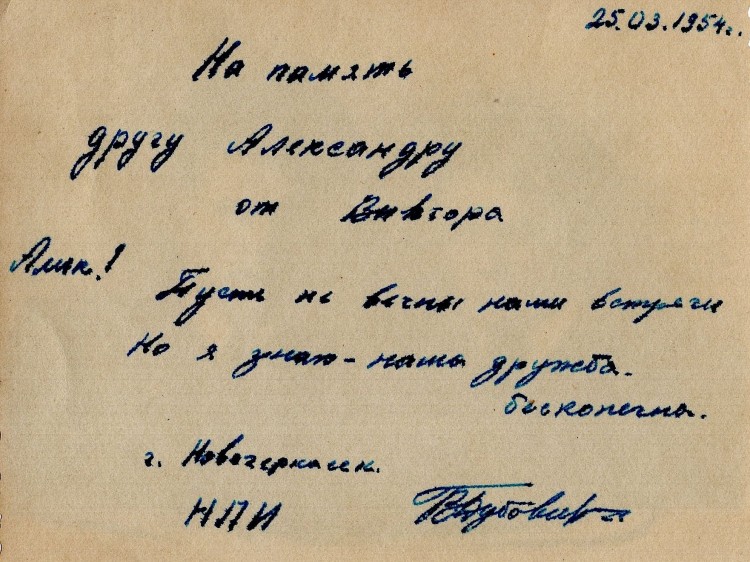 25.03.1954г.
На память
другу Александру
от Виктора
Алик!
Пусть не вечны наши встречи
Но я знаю - наша дружба.
бесконечна.
г. Новочеркасск.
НПИ